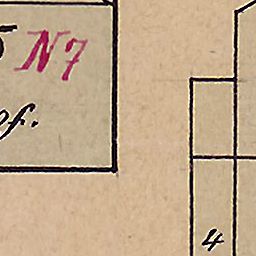 N7
of.
4